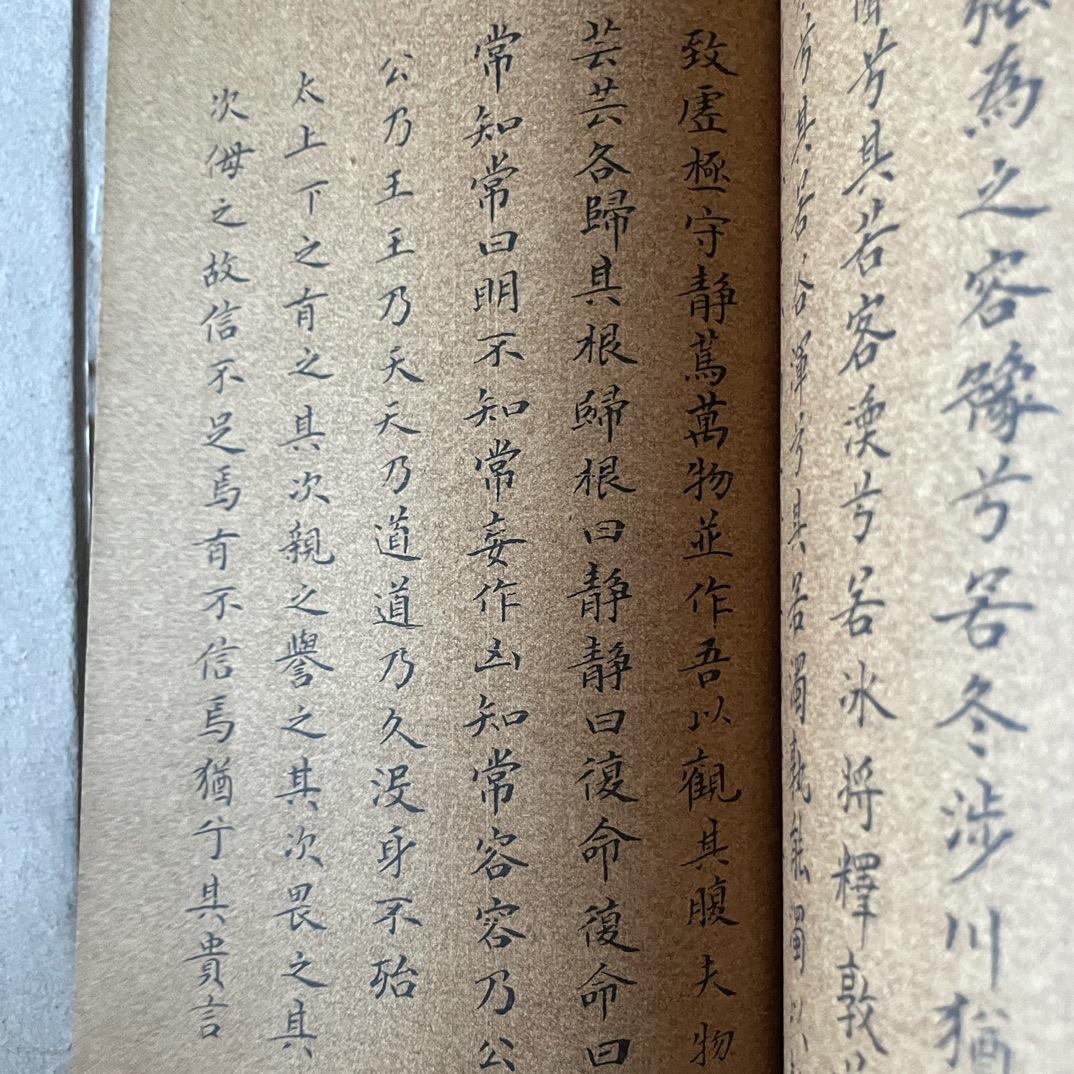 強為之容豫兮若冬涉川猶
兮其若客渙兮若冰將釋敦
兮其若谷渾兮其若濁孰能濁以
致虛極守靜篤萬物並作吾以觀其腹夫物
芸芸各歸其根歸根曰靜靜曰復命復命曰
常知常曰明不知常妄作凶知常容容乃公
公乃王王乃天天乃道道乃久没身不殆
太上下之有之其次親之譽之其次畏之其
次侮之故信不足焉有不信焉猶兮其貴言